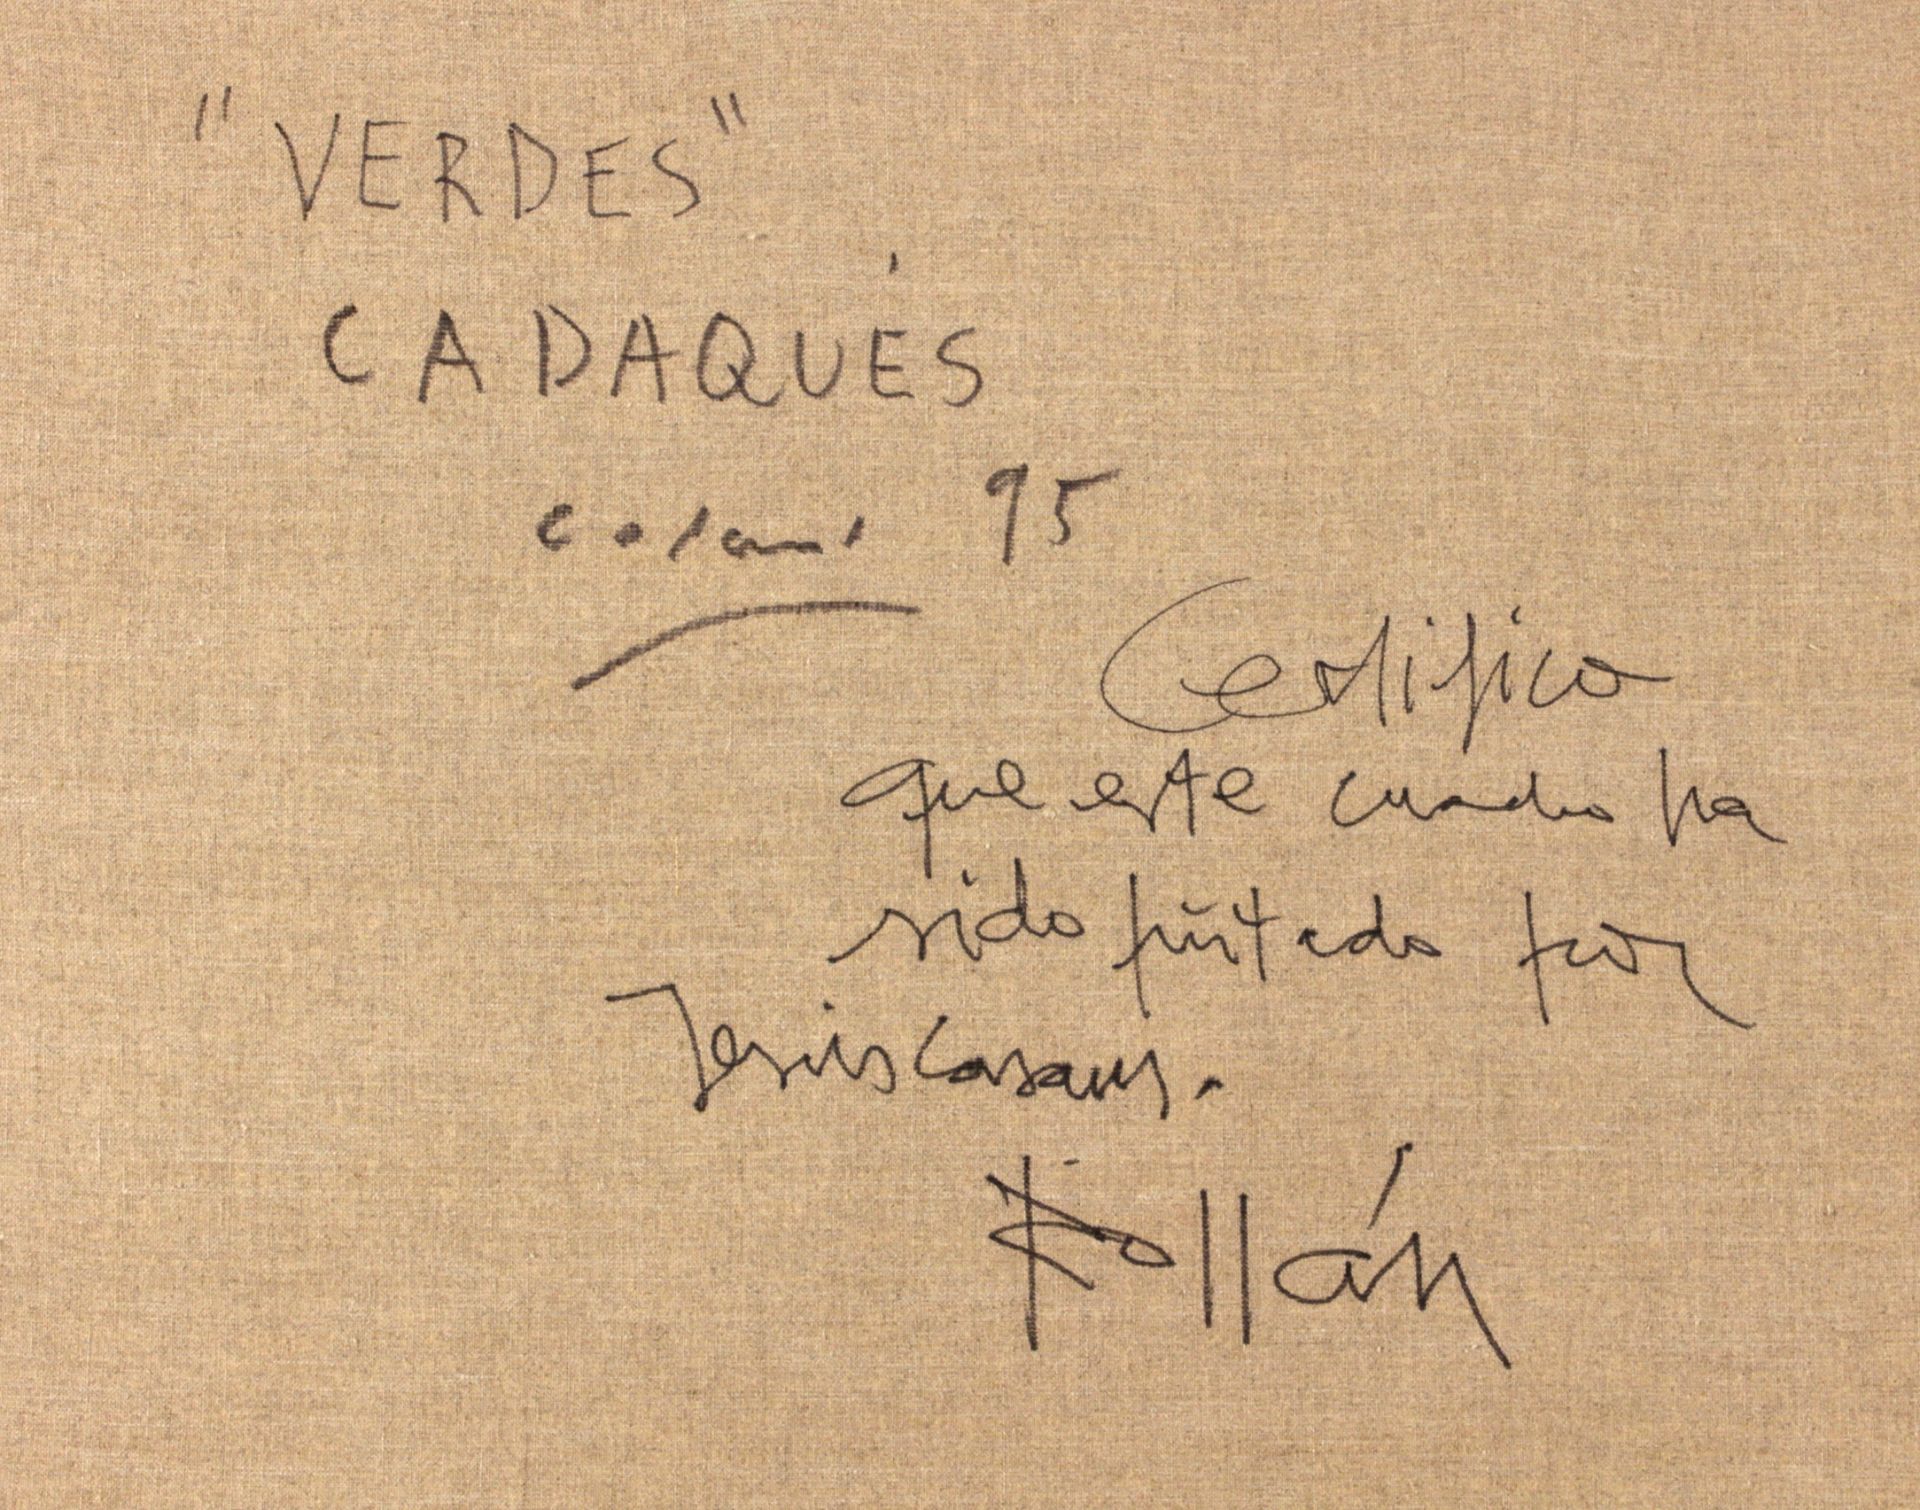 "VERDES"
CADAQUÉS
casaus 95
Certifico
que este cuadro ha
sido pintado por
Jesús Casaus.
Rollán